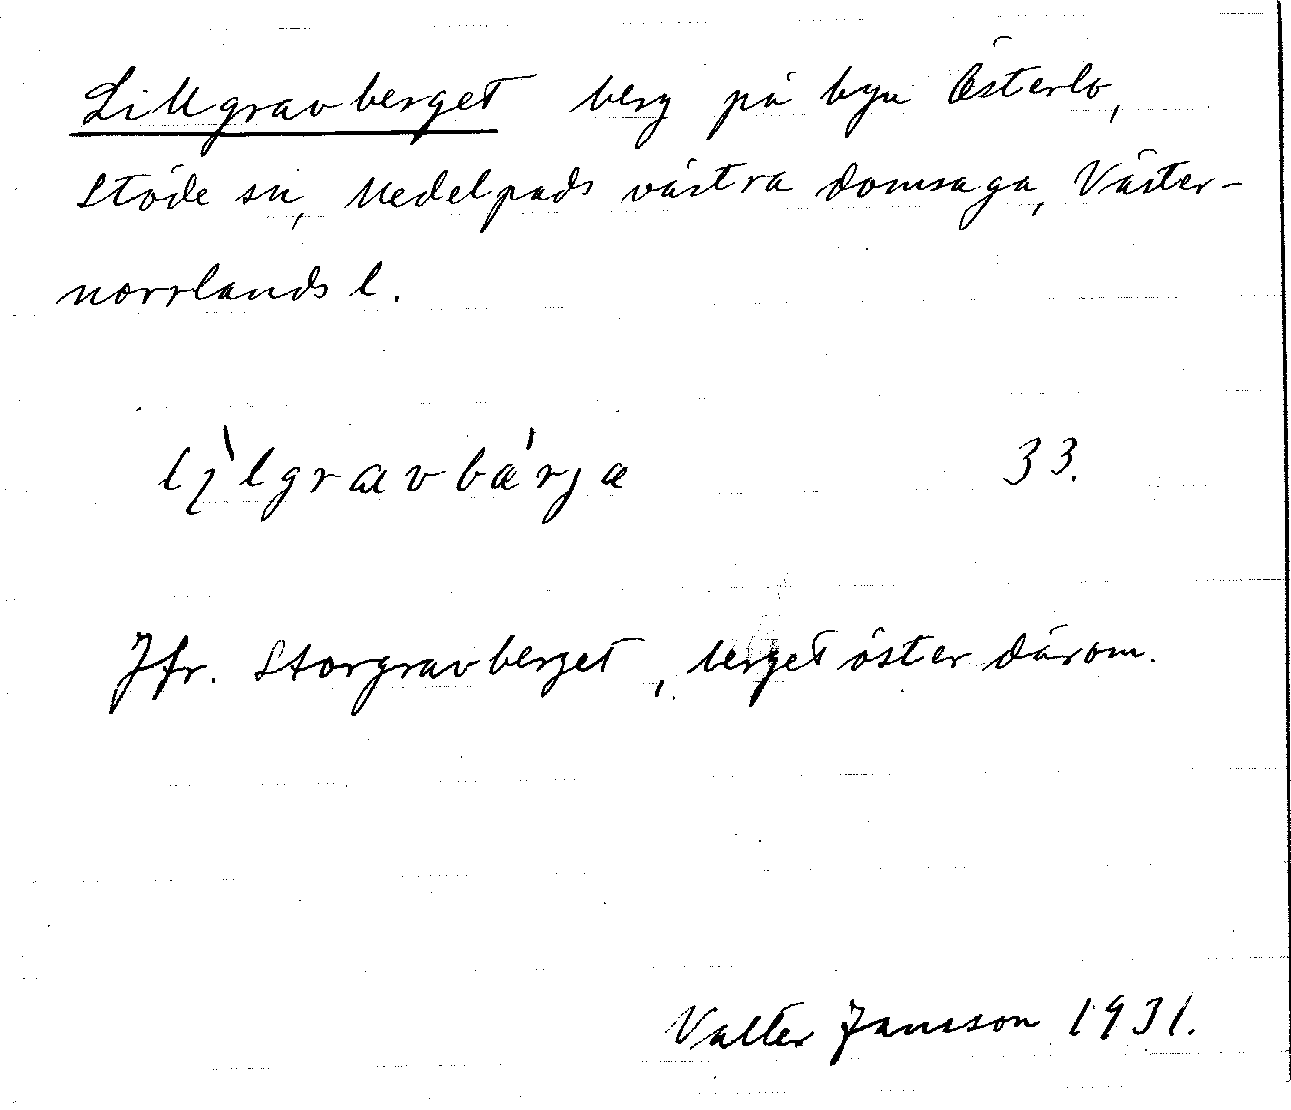 Lillgravberget berg på byn Österlo,
Stöde sn, Medelpads västra domsaga, Väster-
norrlands l.
lìlgravbárja 33.
Jfr. Storgravberget, berget öster därom.
Valter Jansson 1931.